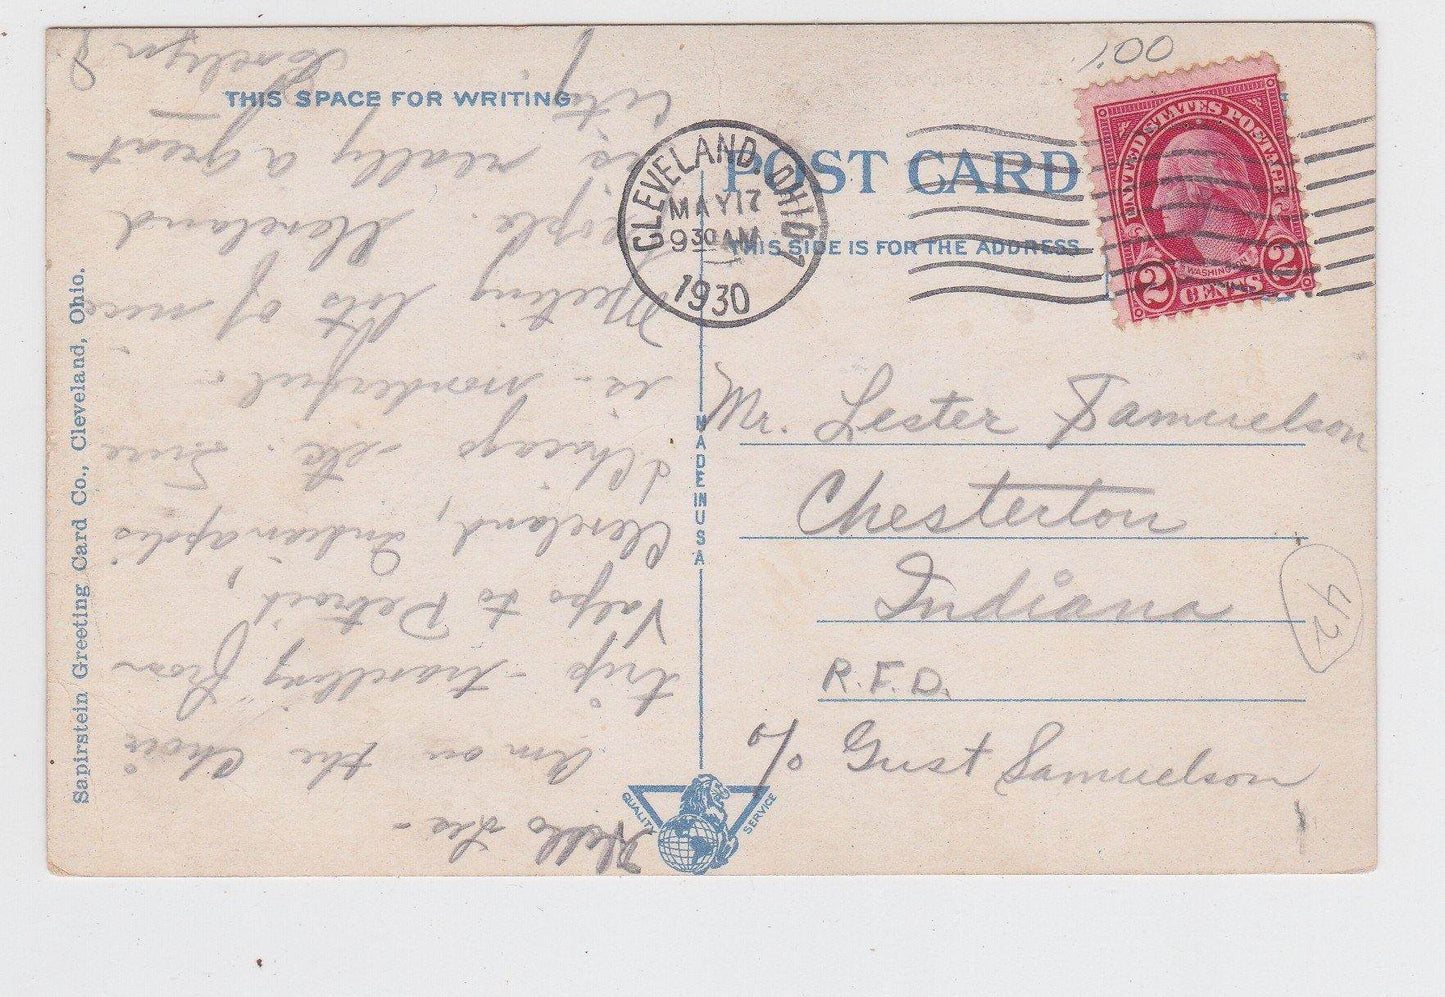 THIS SPACE FOR WRITING
POST CARD
THIS SIDE IS FOR THE ADDRESS
1.00
CLEVELAND, OHIO
MAY 17
9 30 AM
1930
UNITED STATES POSTAGE
WASHINGTON
2 CENTS 2
Hello Les -
Am on the Choir
trip - travelling from
Valpo to Detroit,
Cleveland, Indianapolis
Chicago - etc. Sure
is - wonderful -
Meeting lots of nice
people. Cleveland
is really a great
city.
Mr. Lester Samuelson
Chesterton
Indiana
R.F.D.
c/o Gust Samuelson
42
MADE IN USA
QUALITY SERVICE
Sapirstein Greeting Card Co., Cleveland, Ohio.